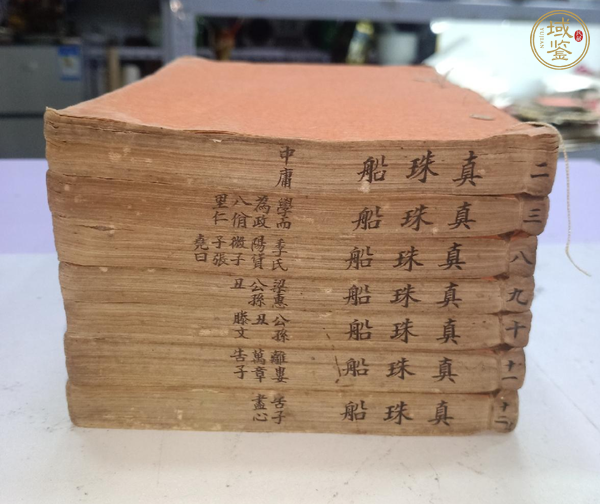 域鉴
YUJIAN
二 真珠船 中庸
三 真珠船 學而 為政 八佾 里仁
八 真珠船 季氏 陽貨 微子 子張 堯曰
九 真珠船 梁惠 公孫丑
十 真珠船 公孫丑 滕文
十一 真珠船 離婁 萬章 告子
十二 真珠船 告子 盡心